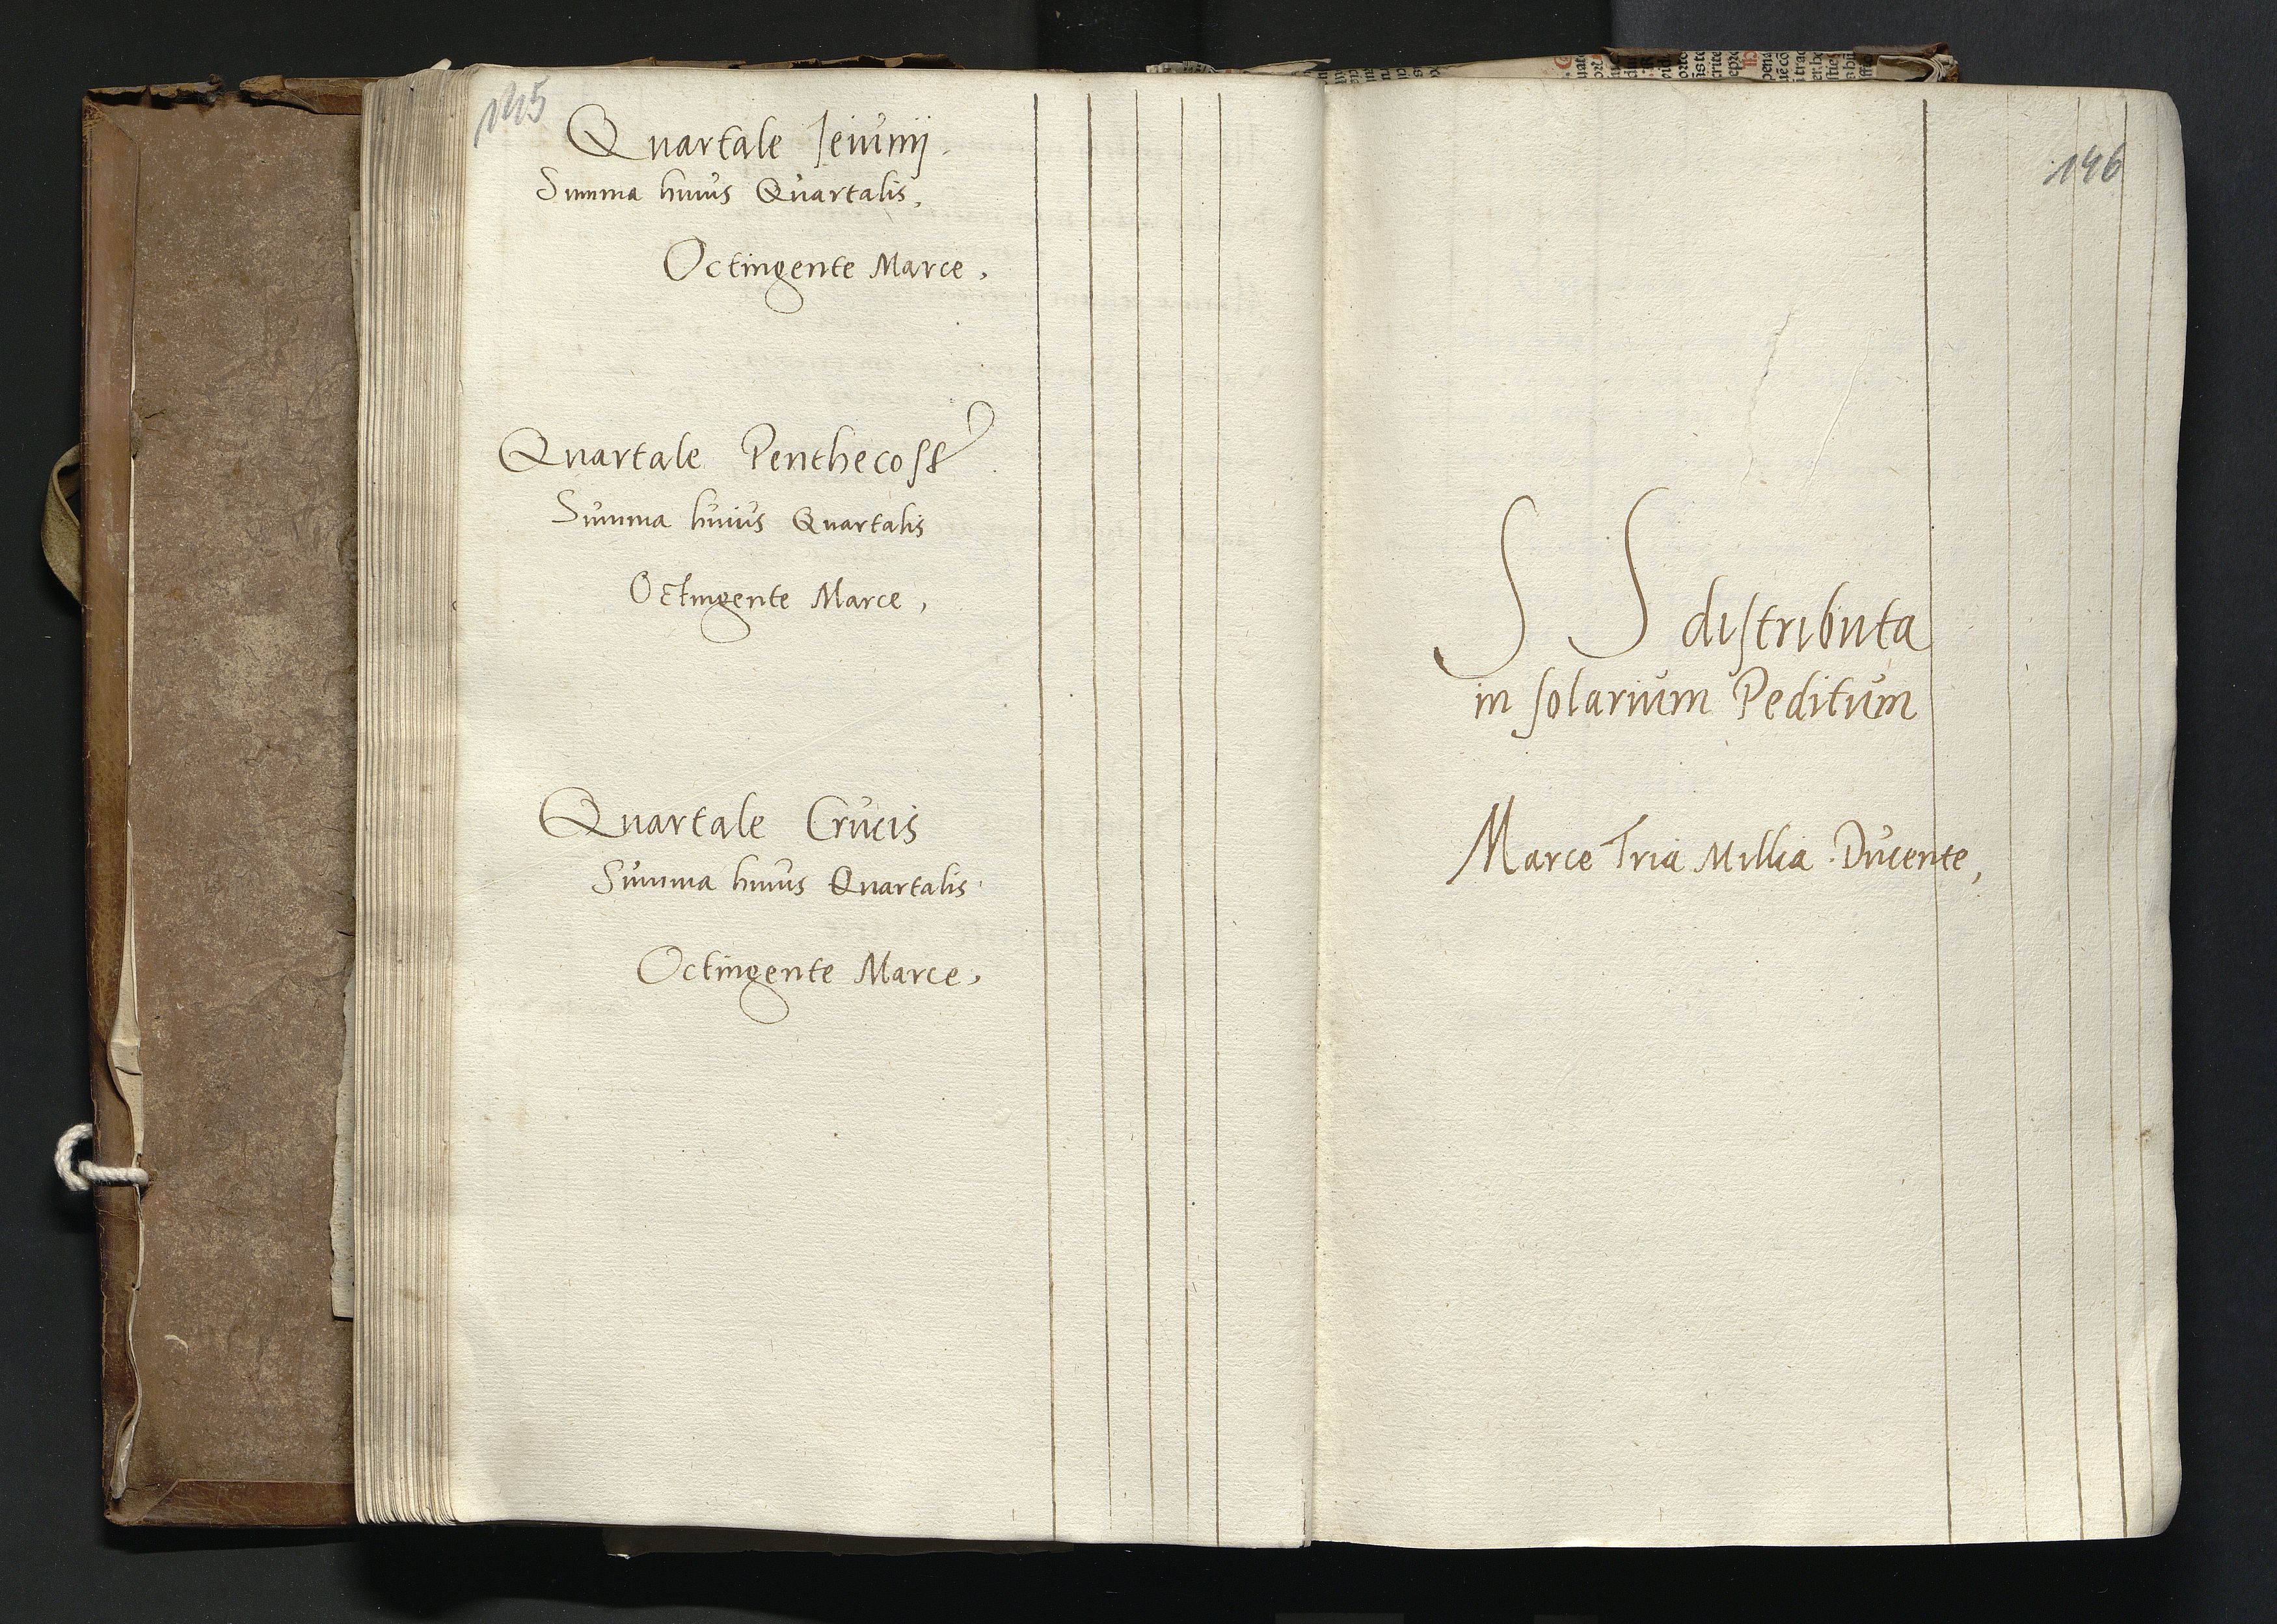 145
Quartale Ieiunij
Summa huius Quartalis,
Octingente Marce,
Quartale Penthecost
Summa huius Quartalis
Octingente Marce,
Quartale Crucis
Summa huius Quartalis
Octingente Marce,
146
S S distributa
in solarium Peditum
Marce Tria Millia Ducente,